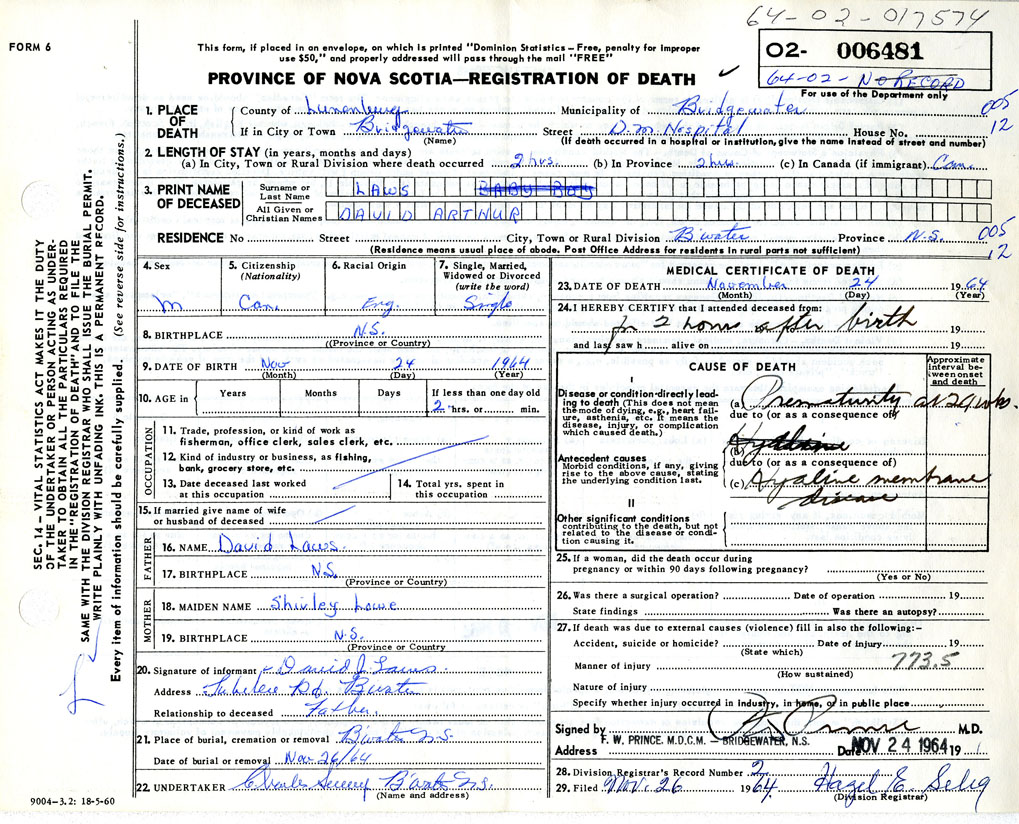 64-02-017574
FORM 6
This form, if placed in an envelope, on which is printed "Dominion Statistics – Free, penalty for improper
use $50," and properly addressed will pass through the mail "FREE"
O2- 006481
64-02- NO RECORD
For use of the Department only
PROVINCE OF NOVA SCOTIA—REGISTRATION OF DEATH
005
12
1. PLACE OF DEATH
County of Lunenburg Municipality of Bridgewater
If in City or Town Bridgewater Street D.M. Hospital House No.
(Name) (If death occurred in a hospital or institution, give the name instead of street and number)
2. LENGTH OF STAY (in years, months and days)
(a) In City, Town or Rural Division where death occurred 2 hrs. (b) In Province 2 hrs (c) In Canada (if immigrant) Can.
3. PRINT NAME OF DECEASED
Surname or Last Name LAWS BABY BOY
All Given or Christian Names DAVID ARTHUR
RESIDENCE No Street City, Town or Rural Division B'water Province N.S.
005
12
(Residence means usual place of abode. Post Office Address for residents in rural parts not sufficient)
4. Sex M
5. Citizenship (Nationality) Can.
6. Racial Origin Eng.
7. Single, Married, Widowed or Divorced (write the word) Single
8. BIRTHPLACE N.S.
((Province or Country)
9. DATE OF BIRTH Nov 24 1964
(Month) (Day) (Year)
10. AGE in Years Months Days If less than one day old
2 hrs. or min.
OCCUPATION
11. Trade, profession, or kind of work as
fisherman, office clerk, sales clerk, etc.
12. Kind of industry or business, as fishing,
bank, grocery store, etc.
13. Date deceased last worked
at this occupation
14. Total yrs. spent in
this occupation
15. If married give name of wife
or husband of deceased
FATHER
16. NAME David Laws.
17. BIRTHPLACE N.S.
(Province or Country)
MOTHER
18. MAIDEN NAME Shirley Lowe
19. BIRTHPLACE N.S.
(Province or Country
20. Signature of informant David J. Laws.
Address Rd. B'water
Relationship to deceased Father.
21. Place of burial, cremation or removal B'water N.S.
Date of burial or removal Nov 26/64
22. UNDERTAKER Charles B'water N.S.
(Name and address)
9004–3.2: 18-5-60
MEDICAL CERTIFICATE OF DEATH
23. DATE OF DEATH November 24 1964
(Month) (Day) (Year)
24. I HEREBY CERTIFY that I attended deceased from:
for 2 hours after birth 19
and last saw h alive on 19
CAUSE OF DEATH
Approximate interval between onset and death
I
Disease or condition directly leading to death (This does not mean the mode of dying, e.g., heart failure, asthenia, etc. It means the disease, injury, or complication which caused death.)
(a) Prematurity at 29 wks.
due to (or as a consequence of)
Antecedent causes
Morbid conditions, if any, giving rise to the above cause, stating the underlying condition last.
(b) Hyaline
due to (or as a consequence of)
(c) Hyaline membrane
disease
II
Other significant conditions
contributing to the death, but not related to the disease or condition causing it.
25. If a woman, did the death occur during
pregnancy or within 90 days following pregnancy?
(Yes or No)
26. Was there a surgical operation? Date of operation 19
State findings Was there an autopsy?
27. If death was due to external causes (violence) fill in also the following:–
Accident, suicide or homicide? Date of injury 19
(State which)
773.5
Manner of injury
(How sustained)
Nature of injury
Specify whether injury occurred in industry, in home, or in public place
Signed by F. W. Prince M.D.
F. W. PRINCE. M.D.C.M. – BRIDGEWATER, N.S.
Address Date NOV 24 1964 19
28. Division Registrar's Record Number 2
29. Filed Nov. 26 1964 Hazel E. Selig
(Division Registrar)
SEC. 14 – VITAL STATISTICS ACT MAKES IT THE DUTY
OF THE UNDERTAKER OR PERSON ACTING AS UNDER-
TAKER TO OBTAIN ALL THE PARTICULARS REQUIRED
IN THE "REGISTRATION OF DEATH" AND TO FILE THE
SAME WITH THE DIVISION REGISTRAR WHO SHALL ISSUE THE BURIAL PERMIT.
WRITE PLAINLY WITH UNFADING INK. THIS IS A PERMANENT RECORD.
Every item of information should be carefully supplied. (See reverse side for instructions.)